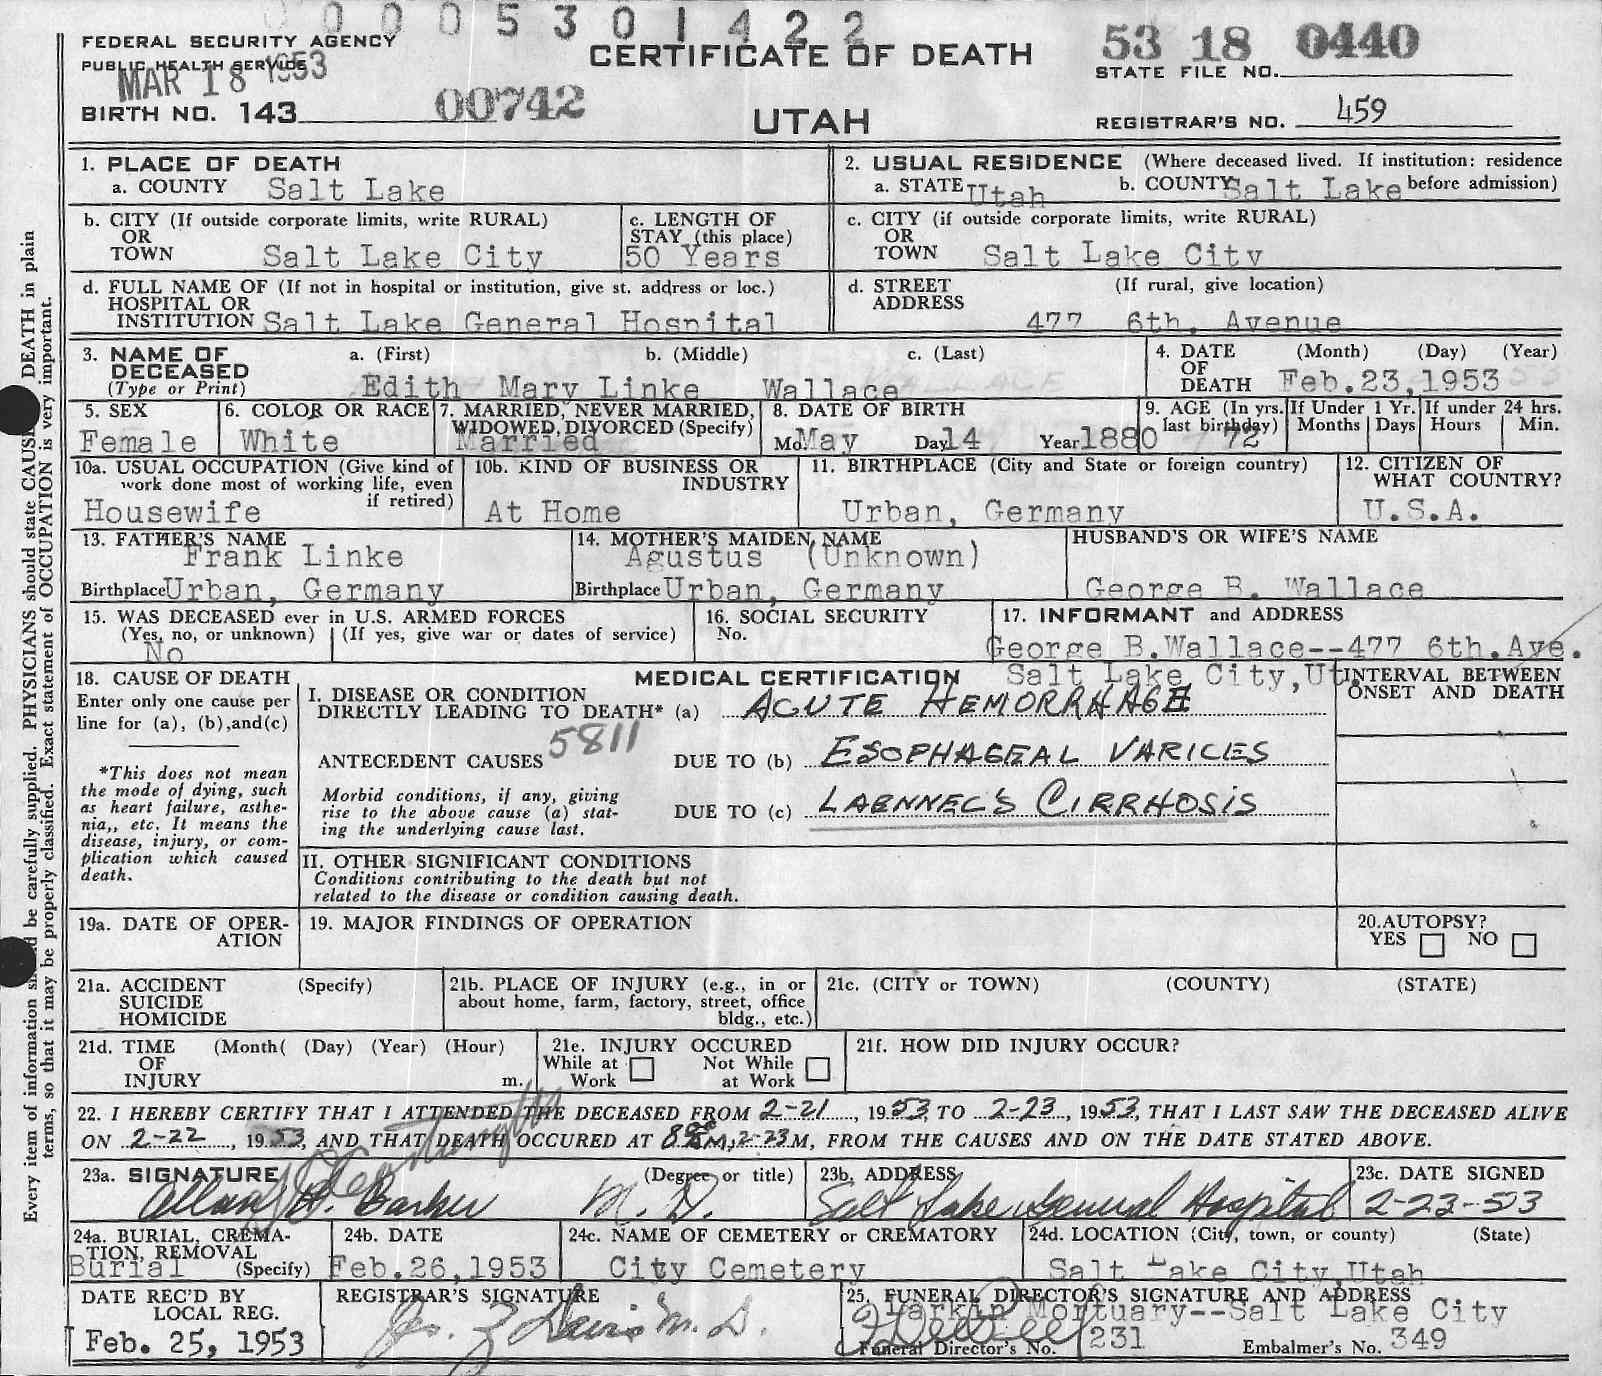 0005301422
FEDERAL SECURITY AGENCY
PUBLIC HEALTH SERVICE
MAR 18 1953
BIRTH NO. 143
00742
CERTIFICATE OF DEATH
UTAH
53 18 0440
STATE FILE NO.
REGISTRAR'S NO. 459
1. PLACE OF DEATH
a. COUNTY Salt Lake
2. USUAL RESIDENCE (Where deceased lived. If institution: residence
a. STATE Utah b. COUNTY Salt Lake before admission)
b. CITY (If outside corporate limits, write RURAL)
OR
TOWN Salt Lake City
c. LENGTH OF
STAY (this place)
50 Years
c. CITY (if outside corporate limits, write RURAL)
OR
TOWN Salt Lake City
d. FULL NAME OF (If not in hospital or institution, give st. address or loc.)
HOSPITAL OR
INSTITUTION Salt Lake General Hospital
d. STREET (If rural, give location)
ADDRESS
477 6th. Avenue
3. NAME OF a. (First) b. (Middle) c. (Last)
DECEASED
(Type or Print) Edith Mary Linke Wallace
4. DATE (Month) (Day) (Year)
OF
DEATH Feb.23,1953
5. SEX
Female
6. COLOR OR RACE
White
7. MARRIED, NEVER MARRIED,
WIDOWED, DIVORCED (Specify)
Married
8. DATE OF BIRTH
Mo. May Day 14 Year 1880
9. AGE (In yrs.
last birthday)
72
If Under 1 Yr.
Months Days
If under 24 hrs.
Hours Min.
10a. USUAL OCCUPATION (Give kind of
work done most of working life, even
if retired)
Housewife
10b. KIND OF BUSINESS OR
INDUSTRY
At Home
11. BIRTHPLACE (City and State or foreign country)
Urban, Germany
12. CITIZEN OF
WHAT COUNTRY?
U.S.A.
13. FATHER'S NAME
Frank Linke
Birthplace Urban, Germany
14. MOTHER'S MAIDEN NAME
Agustus (Unknown)
Birthplace Urban, Germany
HUSBAND'S OR WIFE'S NAME
George B. Wallace
15. WAS DECEASED ever in U.S. ARMED FORCES
(Yes, no, or unknown) (If yes, give war or dates of service)
No
16. SOCIAL SECURITY
No.
17. INFORMANT and ADDRESS
George B.Wallace--477 6th.Ave.
Salt Lake City,Ut.
18. CAUSE OF DEATH
Enter only one cause per
line for (a), (b),and(c)
*This does not mean
the mode of dying, such
as heart failure, asthe-
nia,, etc. It means the
disease, injury, or com-
plication which caused
death.
MEDICAL CERTIFICATION
INTERVAL BETWEEN
ONSET AND DEATH
I. DISEASE OR CONDITION
DIRECTLY LEADING TO DEATH* (a) ACUTE HEMORRHAGE
5811
ANTECEDENT CAUSES DUE TO (b) ESOPHAGEAL VARICES
Morbid conditions, if any, giving
rise to the above cause (a) stat-
ing the underlying cause last.
DUE TO (c) LAENNEC'S CIRRHOSIS
II. OTHER SIGNIFICANT CONDITIONS
Conditions contributing to the death but not
related to the disease or condition causing death.
19a. DATE OF OPER-
ATION
19. MAJOR FINDINGS OF OPERATION
20.AUTOPSY?
YES NO
21a. ACCIDENT (Specify)
SUICIDE
HOMICIDE
21b. PLACE OF INJURY (e.g., in or
about home, farm, factory, street, office
bldg., etc.)
21c. (CITY or TOWN) (COUNTY) (STATE)
21d. TIME (Month( (Day) (Year) (Hour)
OF
INJURY m.
21e. INJURY OCCURED
While at Not While
Work at Work
21f. HOW DID INJURY OCCUR?
22. I HEREBY CERTIFY THAT I ATTENDED THE DECEASED FROM 2-21, 1953, TO 2-23, 1953, THAT I LAST SAW THE DECEASED ALIVE
ON 2-22, 1953, AND THAT DEATH OCCURED AT M, 2-23 M, FROM THE CAUSES AND ON THE DATE STATED ABOVE.
23a. SIGNATURE (Degree or title)
Allan B. Barker M.D.
23b. ADDRESS
Salt Lake General Hospital
23c. DATE SIGNED
2-23-53
24a. BURIAL, CREMA-
TION, REMOVAL
Burial (Specify)
24b. DATE
Feb.26,1953
24c. NAME OF CEMETERY OR CREMATORY
City Cemetery
24d. LOCATION (City, town, or county) (State)
Salt Lake City,Utah
DATE REC'D BY
LOCAL REG.
Feb. 25, 1953
REGISTRAR'S SIGNATURE
Davis M.D.
25. FUNERAL DIRECTOR'S SIGNATURE AND ADDRESS
Larkin Mortuary--Salt Lake City
Funeral Director's No. 231 Embalmer's No. 349
Every item of information be carefully supplied. PHYSICIANS should state CAUSE DEATH in plain
terms, so that it may be properly classified. Exact statement of OCCUPATION is very important.